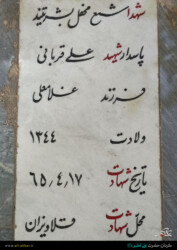 شهدا شمع محفل بشریتند
پاسدار شهید علی قربانی
فرزند غلامعلی
ولادت ۱۳۴۴
تاریخ شهادت ۶۵,۴,۱۷
محل شهادت قلاویزان